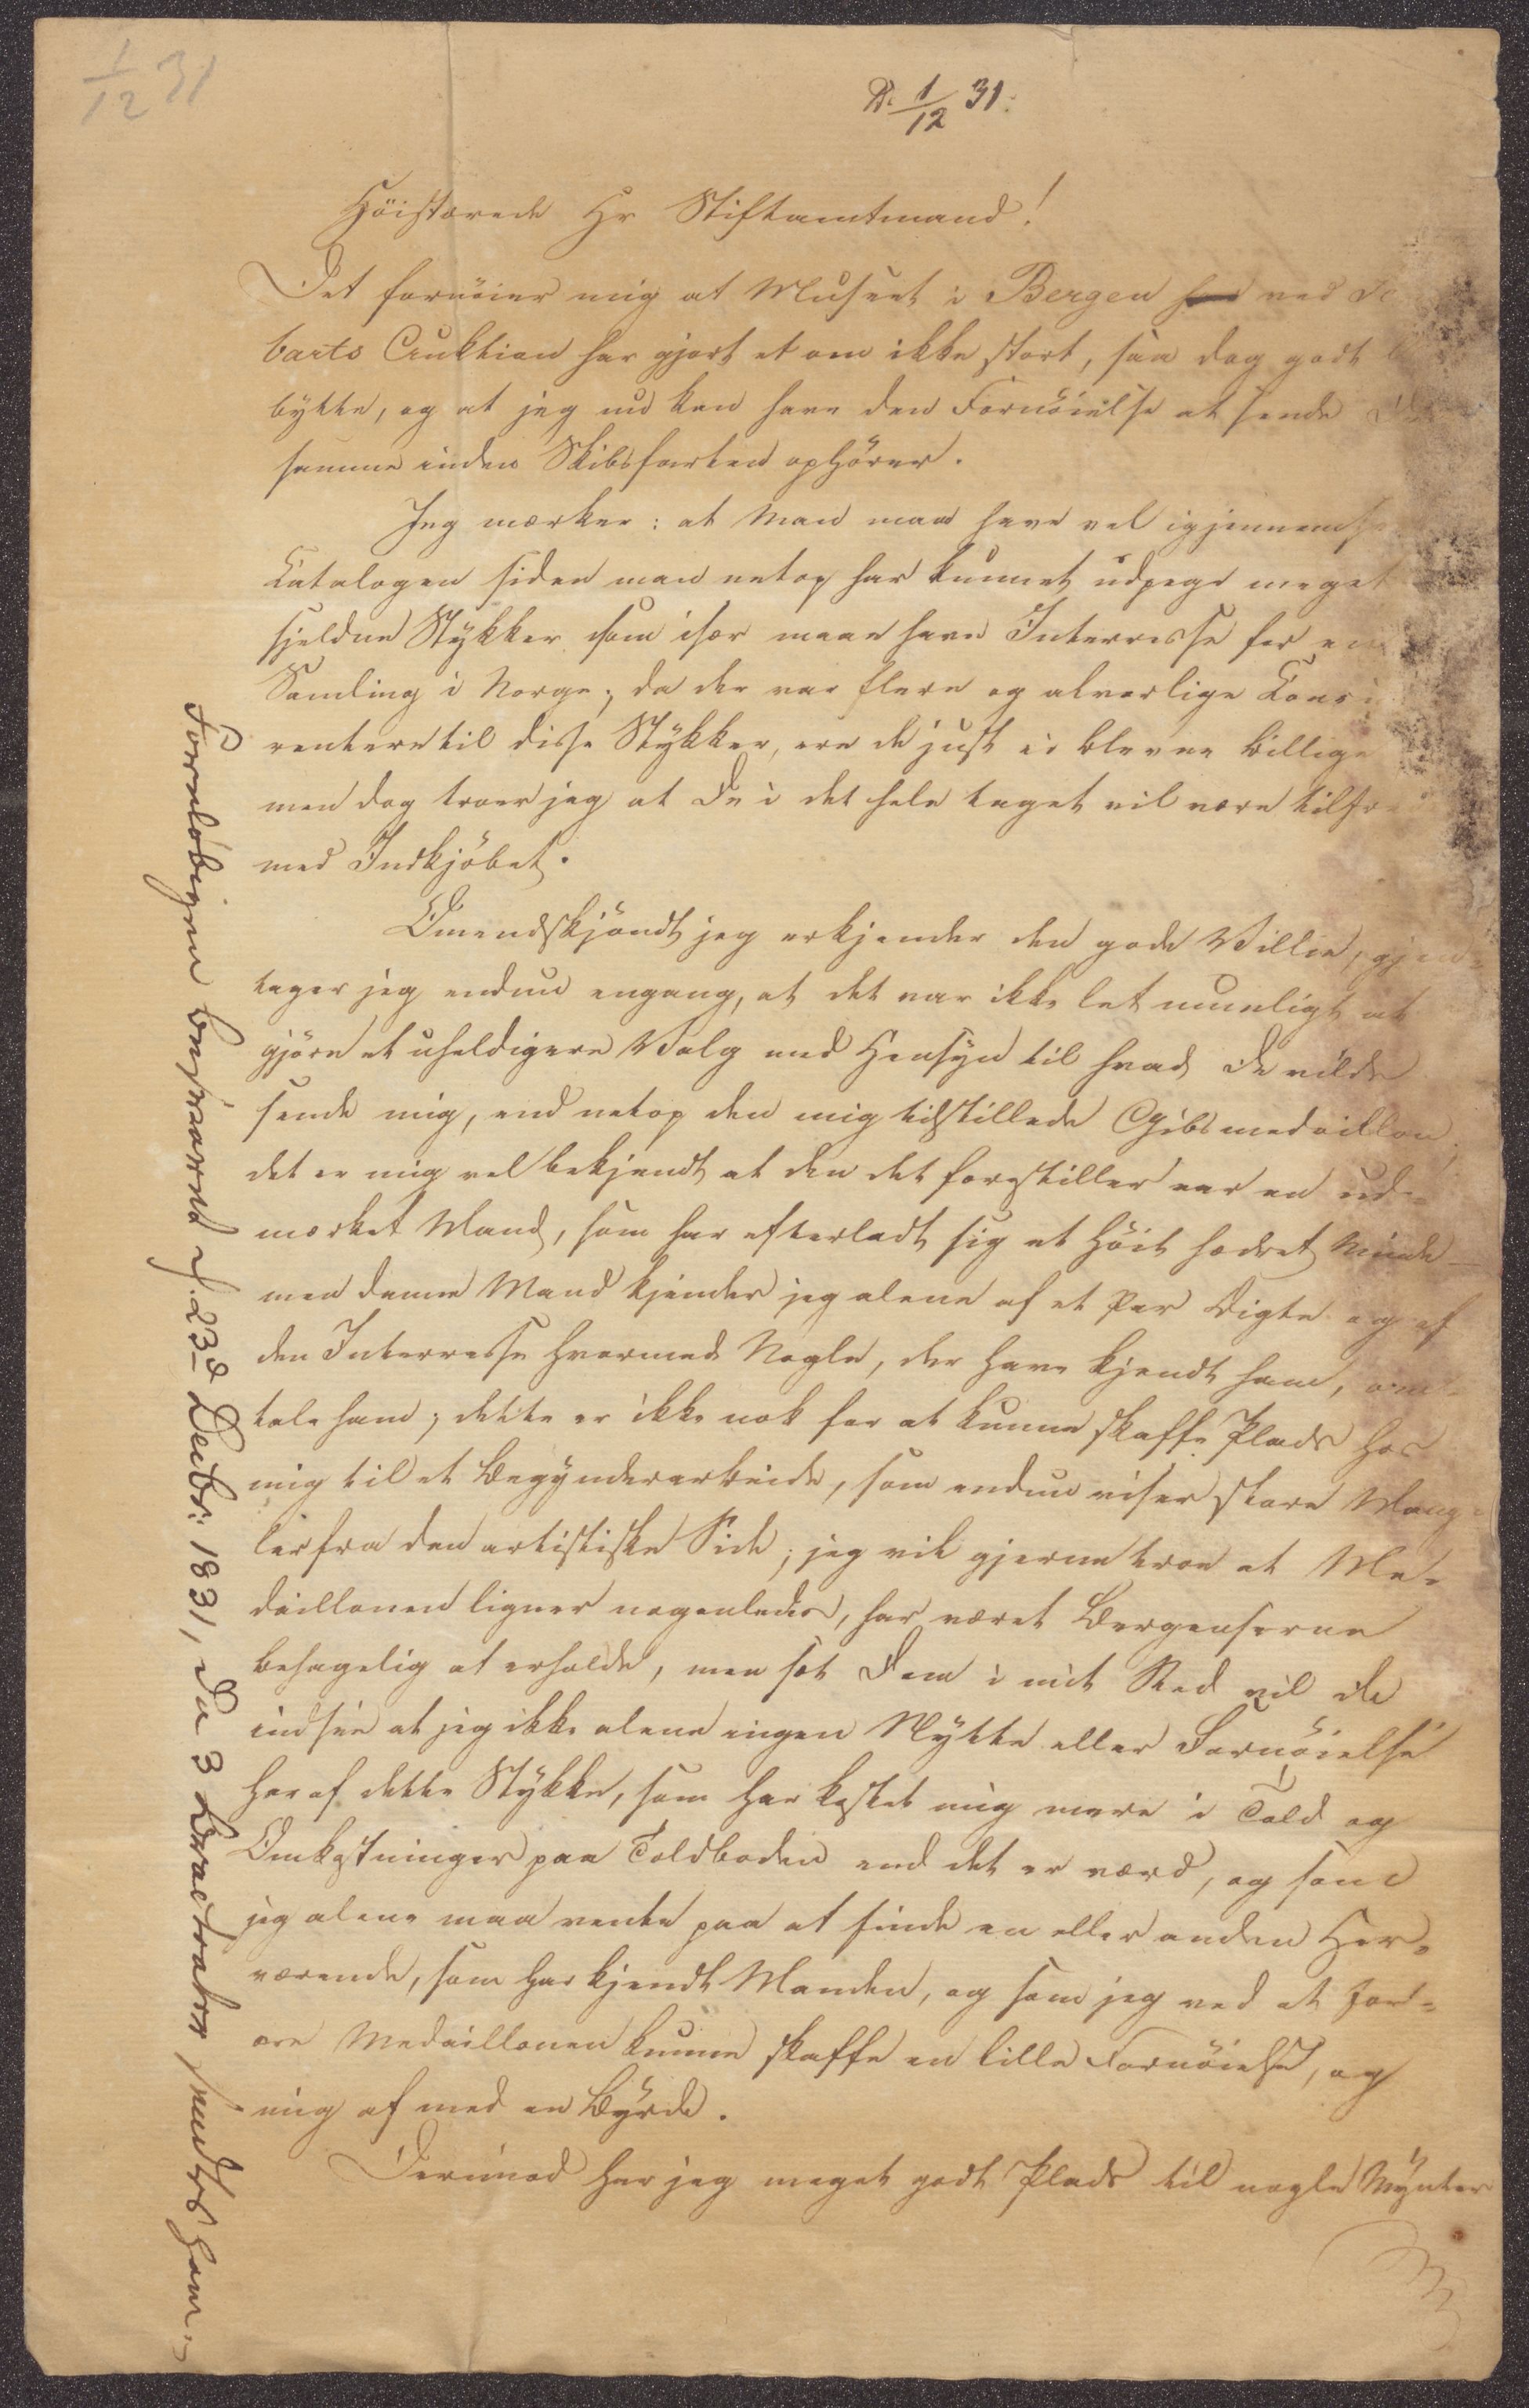 1/12 31
D. 1/12 31.
Höistærede Hr Stiftamtmand!
Det fornöier mig at Museet i Bergen ved De
barts Auktion har gjort et om ikke stort, saa dog godt
bytte, og at jeg nu kan have den Fornöielse at sende
samme inden Skibsfarten ophörer.
Jeg mærker: at Man maa have vel igjennem
Catalogen siden man netop har kunnet udpege meget
sjeldne Stykker som især maae have Interresse for en
Samling i Norge; da der var flere og alvorlige Concu
rentere til disse Stykker, ere de just ei blevne billige
men dog troer jeg at De i det hele taget vil være tilfre
med Indkjöbet.
Omendskjöndt jeg erkjender den gode Villie, gjen-
tager jeg endnu engang, at det var ikke let mueligt at
gjöre et uheldigere Valg med Hensyn til hvad De vilde
sende mig, end netop den mig tilstillede Gibsmedaillon,
det er mig vel bekjendt at den det forestiller var en ud-
mærket Mand, som har efterladt sig et höit hædret Minde —
men denne Mand kjender jeg alene af et Par Digte og af
den Interresse hvormed Nogle, der have kjendt ham, om-
tale ham; dette er ikke nok for at kunne skaffe Plads hos
mig til et Begynderarbeide, som endnu viser store Mang-
ler fra den artistiske Side; jeg vil gjerne troe at Me-
daillonen ligner nogenledes, har været Bergenserne
behagelig at erholde, men sæt Dem i mit Sted vil De
indsee at jeg ikke alene ingen Nytte eller Fornöielse
har af dette Stykke, som har kostet mig mere i Told og
Omkostninger paa Toldboden end det er værd, og som
jeg alene maa vente paa at finde en eller anden Her-
værende, som har kjendt Manden, og som jeg ved at for-
ære Medaillonen kunne skaffe en lille Fornöielse, og
mig af med en Byrde.
Derimod har jeg meget godt Plads til nogle Mynter
Forelöbigen besvaret d. 23d Decbr: 1831, de 3 Bracteater sendtes ham.